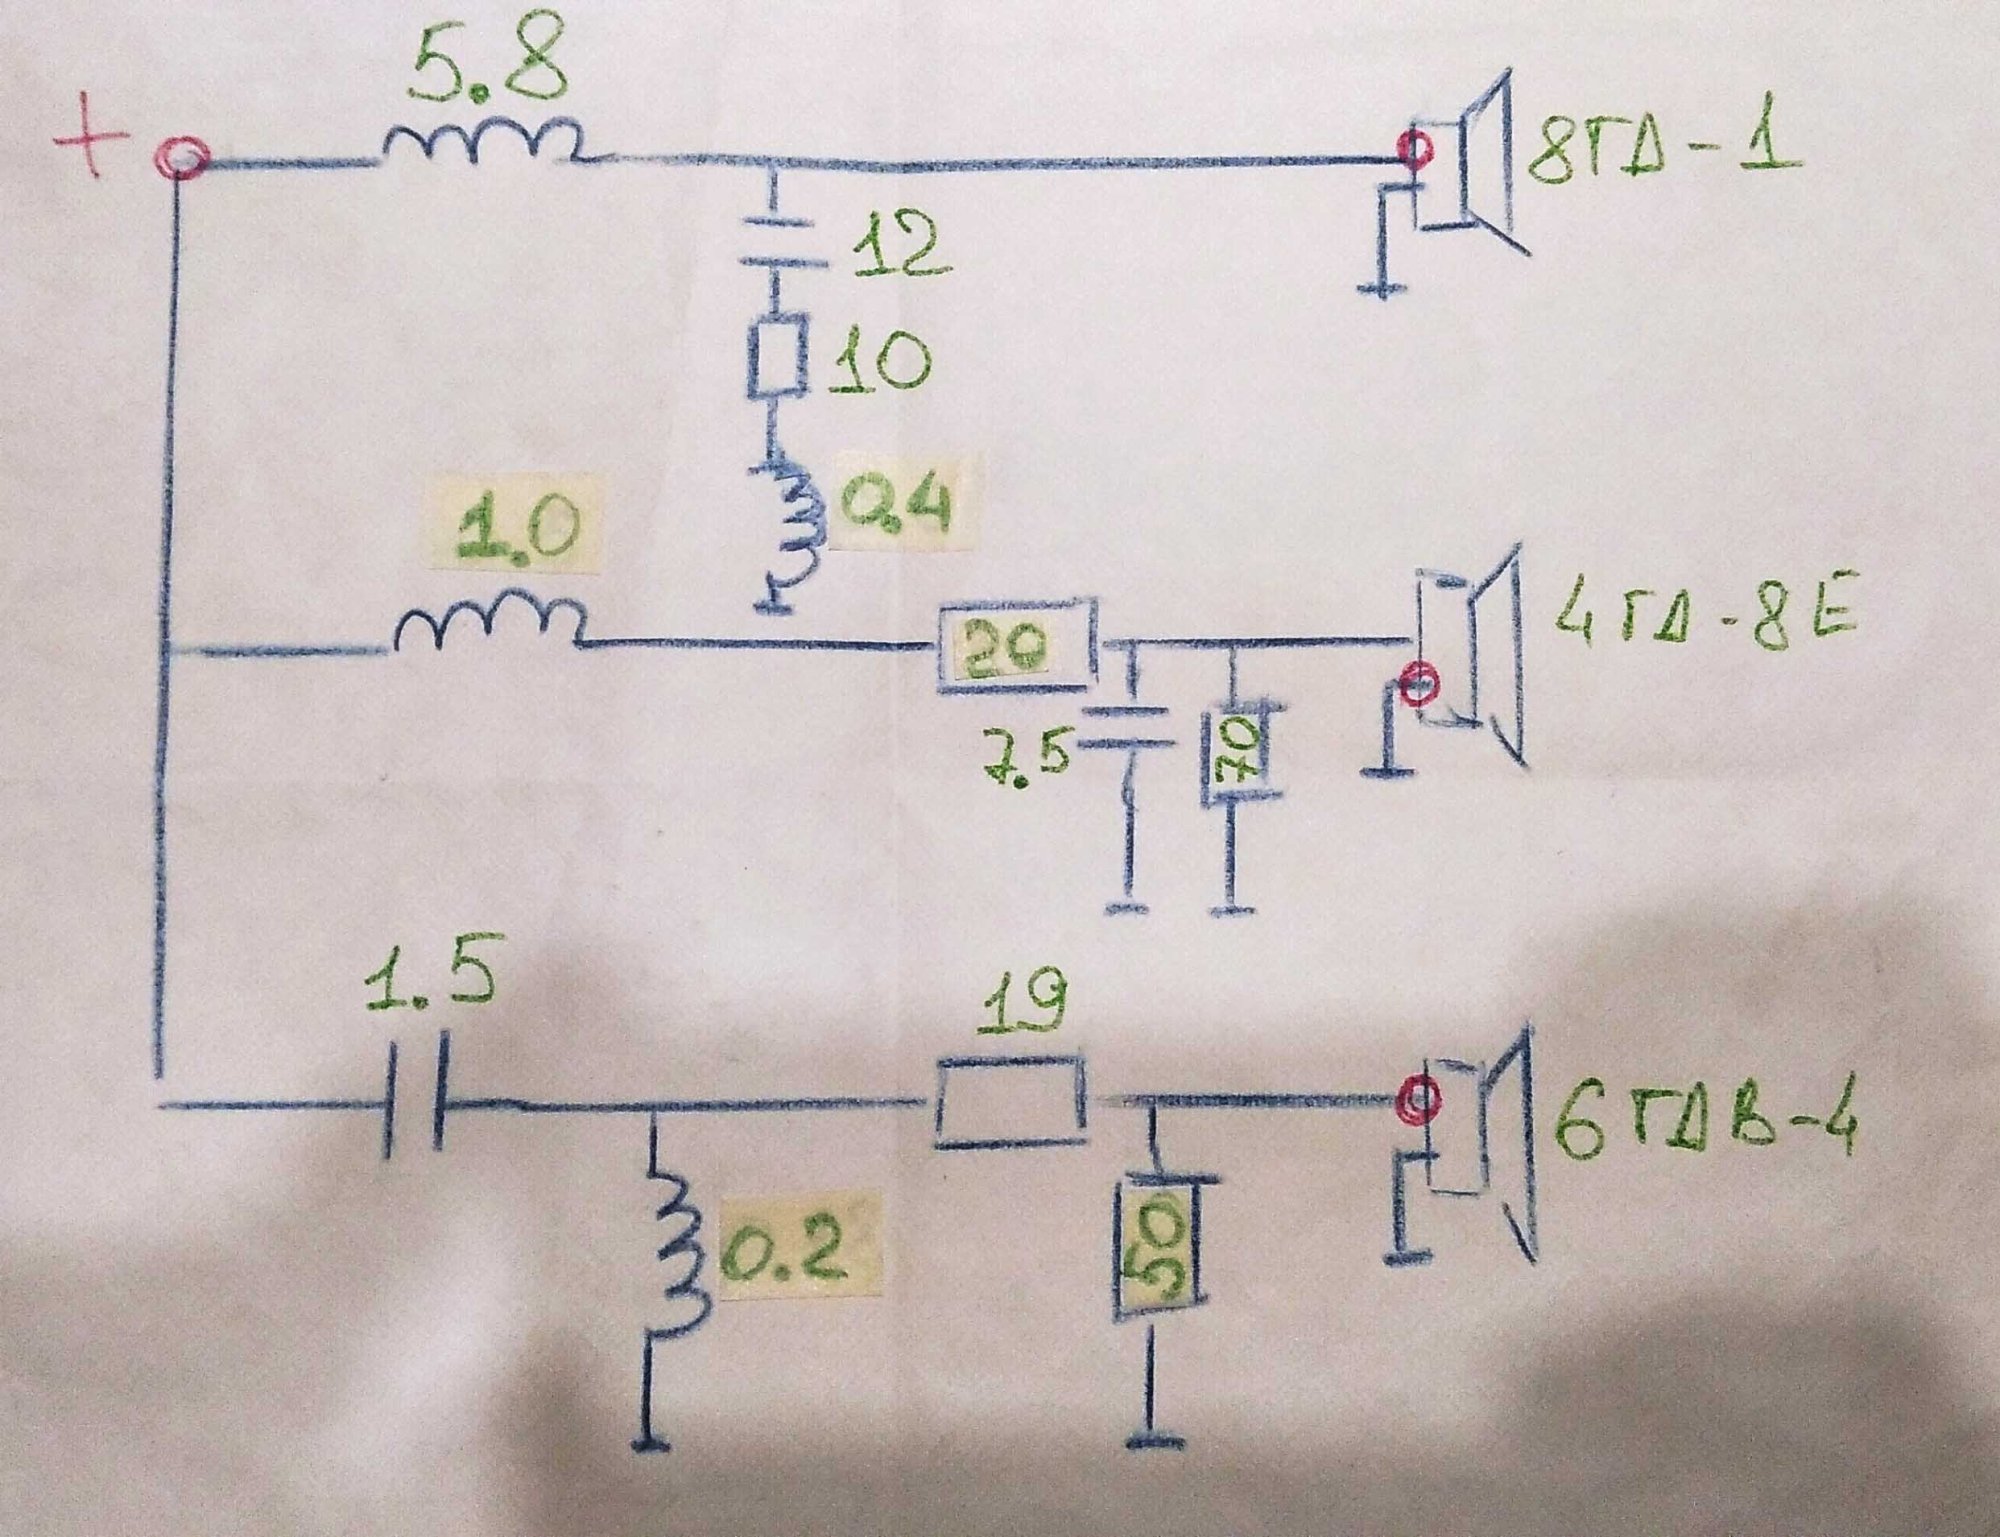 5.8
+
8ГД-1
12
10
0.4
1.0
20
4ГД-8Е
7.5
70
1.5
19
6ГДВ-4
0.2
50